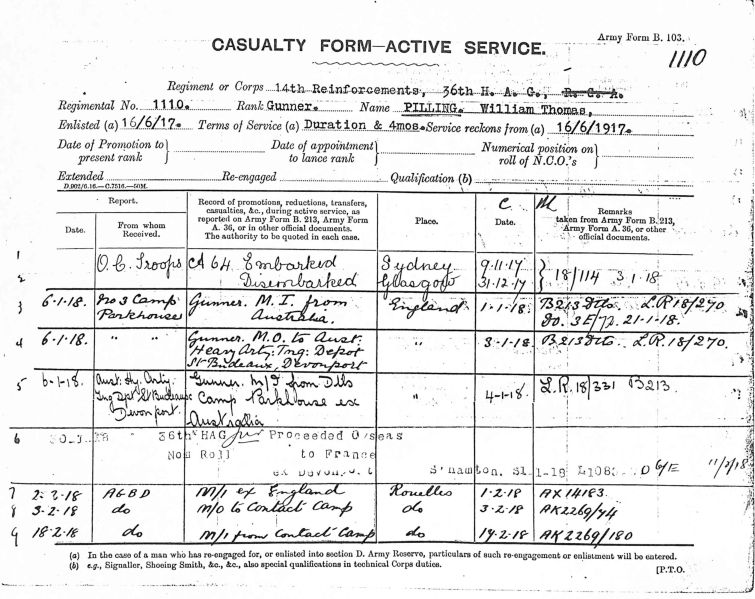 Army Form B. 103.
1110
CASUALTY FORM—ACTIVE SERVICE.
Regiment or Corps 14th Reinforcements, 36th H. A. G., R. G. A.
Regimental No. 1110. Rank Gunner. Name PILLING. William Thomas,
Enlisted (a) 16/6/17. Terms of Service (a) Duration & 4mos. Service reckons from (a) 16/6/1917.
Date of Promotion to present rank Date of appointment to lance rank Numerical position on roll of N.C.O.'s
Extended Re-engaged Qualification (b)
D.902/6.16.—C.7516.—50M.
C M
Report. Record of promotions, reductions, transfers, casualties, &c., during active service, as reported on Army Form B. 213, Army Form A. 36, or in other official documents. The authority to be quoted in each case. Place. Date. Remarks taken from Army Form B. 213, Army Form A. 36, or other official documents.
Date. From whom Received.
1 O.C. Troops CA 64 Embarked Sydney 9.11.17
2 Disembarked Glasgow 31.12.17 } 18/114 3.1.18
3 6.1.18. No 3 Camp Parkhouse Gunner. M.I. from Australia. England 1.1.18 B213 Dtls. L.R 18/270
Do. 3E/72. 21-1-18.
4 6.1.18. " " Gunner. M.O. to Aust. Heavy Arty: Tng: Depot St Budeaux, Devonport " 3-1-18. B213 Dtls. L.R 18/270.
5 6-1-18. Aust: Hy. Arty: Tng Dpt St Budeaux Devonport. Gunner. M/I from Dtls Camp Parkhouse ex Australia " 4-1-18. L.R. 18/331 B213
6 36th HAG Proceeded O/seas
Nom Roll to France
ex Devonport S'hamton. 31-1-18 11/2/18
7 2-2-18 AGBD M/I ex England Rouelles 1-2-18 AX14183.
8 3-2-18 do M/O to Contact Camp do 3-2-18 AK2269/74
9 18-2-18 do M/I from Contact Camp do 17-2-18 AK2269/180
(a) In the case of a man who has re-engaged for, or enlisted into section D. Army Reserve, particulars of such re-engagement or enlistment will be entered.
(b) e.g., Signaller, Shoeing Smith, &c., &c., also special qualifications in technical Corps duties.
[P.T.O.